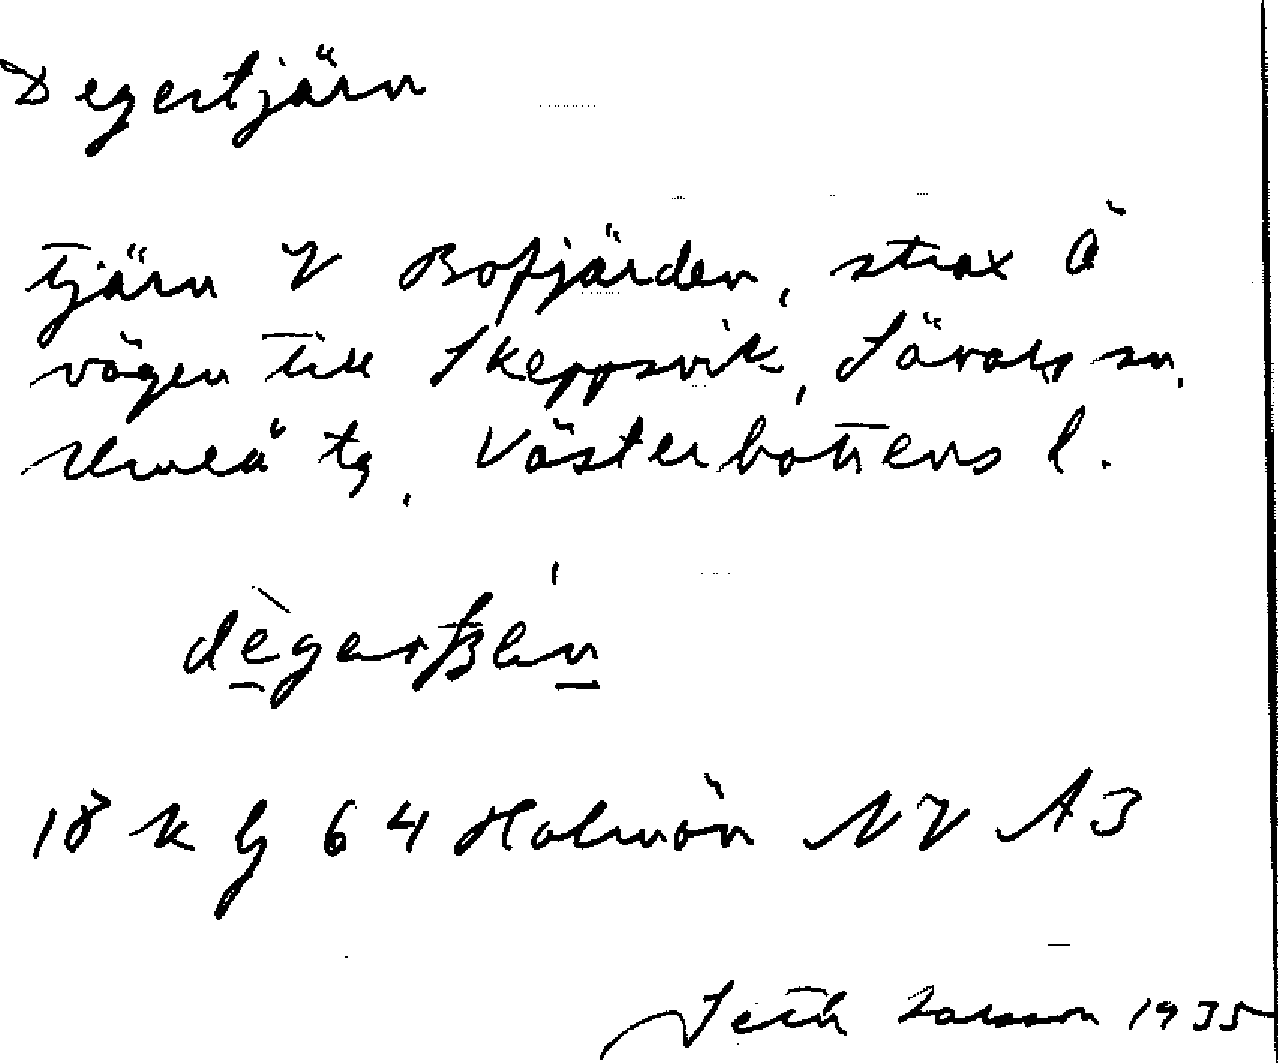 Degertjärn
tjärn V Bofjärden, strax Ö
vägen till Skeppsvik, Sävars sn,
Umeå tg, Västerbottens l.
18 k bl 64 Holmön NV A3
Seth Larsson 1935